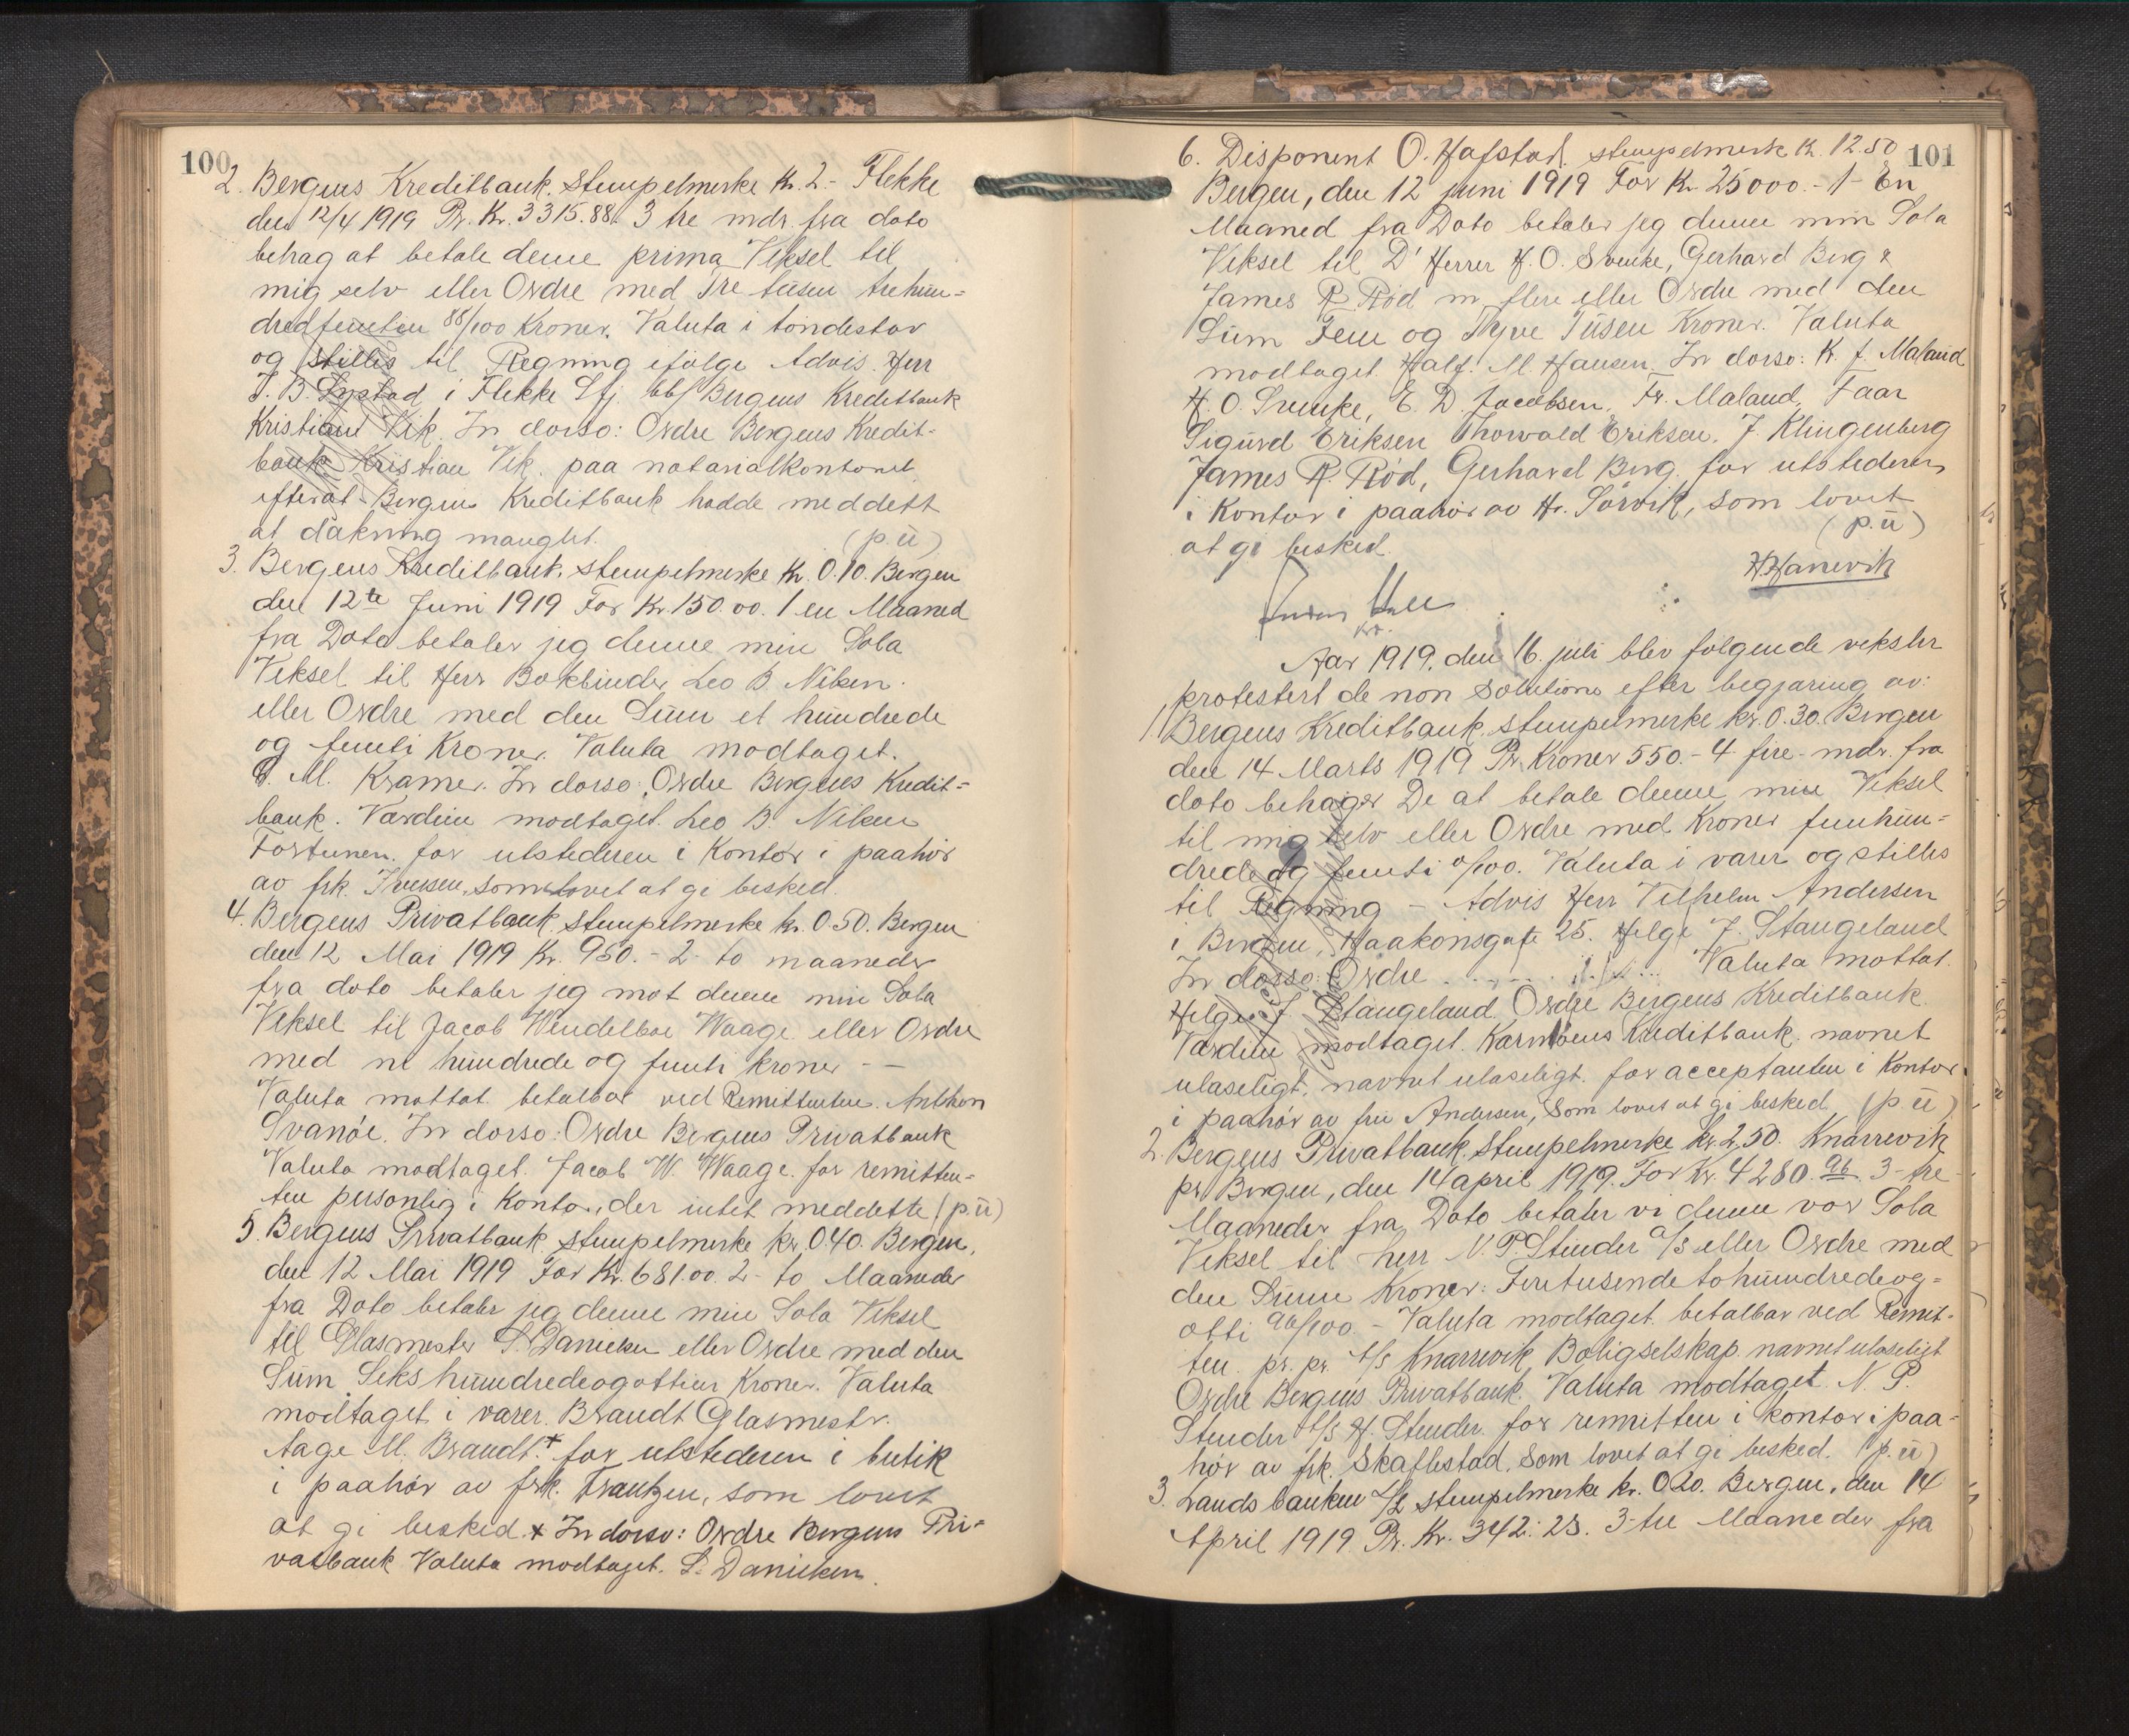 100
2. Bergens Kreditbank. Stempelmerke Kr. 2.- Flekke
den 12/4 1919 Pr. Kr. 3315.88. 3 tre mdr. fra dato
behag at betale denne prima Veksel til
mig selv eller Ordre med Tre tusen trehun=
dredfemten 88/100 Kroner. Valuta i töndestav
og stilles til Regning ifölge Advis. Herr
J. B. i Flekke Sfj. bbf Bergens Kreditbank
Kristian Vik. In dorso: Ordre Bergens Kredit-
bank Kristian Vik. paa notarialkontoret
efterat Bergens Kreditbank hadde meddelt
at dækning manglet. (p. u)
3. Bergens Kreditbank. Stempelmerke Kr. 0.10. Bergen
den 12te Juni 1919 For Kr. 150.00. 1 en Maaned
fra Dato betaler jeg denne min Sola
Veksel til Herr Bokbinder Leo B. Nilsen.
eller Ordre med den Sum et hundrede
og femti Kroner. Valuta modtaget.
M. Kramer. In dorso: Ordre Bergens Kredit=
bank. Værdien modtaget. Leo B. Nilsen
Fortunen. for utstederen i Kontor i paahör
av frk. Iversen, som lovet at gi besked.
4. Bergens Privatbank. Stempelmerke kr. 0.50. Bergen
den 12 Mai 1919 Kr. 950.- 2- to maaneder
fra dato betaler jeg mot denne min Sola
Veksel til Jacob Wendelboe Waage eller Ordre
med ni hundrede og femti kroner - -
Valuta mottat betalbar ved Remittenten. Anthon
Svanöe. In dorso: Ordre Bergens Privatbank
Valuta modtaget. Jacob W. Waage. for remitten=
ten personlig i Kontor, der intet meddelte (p. u)
5. Bergens Privatbank. Stempelmerke kr. 0.40. Bergen,
den 12 Mai 1919 For Kr. 681.00. 2- to Maaneder
fra Dato betaler jeg denne min Sola Veksel
til Glasmester S. Danielsen eller Ordre med den
Sum Sekshundredeogottien Kroner. Valuta
modtaget i varer. Brandt Glasmestr.
Aage M. Brandt.* for utstederen i butik
i paahör av frk. Frantzen, som lovet
at gi besked. * In dorso: Ordre Bergens Pri=
vatbank Valuta modtaget. S. Danielsen.
101
6. Disponent O. Hafstad. stempelmerk k. 12.50
Bergen, den 12 juni 1919 For Kr. 25000.- 1- En
Maaned fra Dato betaler jeg denne min Sola
Veksel til D' Herrer H. O. Svenke, Gerhard Berg &
James R. Röd m. flere eller Ordre med den
Sum Fem og Tyve Tusen Kroner. Valuta
modtaget Half. M. Hansen. In dorso: K. J. Maland
H. O. Svenke, E. D. Jacobsen, Fr. Maland, Faar
Sigurd Eriksen Thorvald Eriksen, J. Klingenberg
James R. Röd, Gerhard Berg. for utstederen
i Kontor i paahör av Hr. Sörvik, som lovet
at gi besked. (p. u)
H Hanevik
Aar 1919, den 16. juli blev fölgende veksler
protestert de non solutione efter begjæring av:
1. Bergens Kreditbank. stempelmerke kr. 0.30. Bergen
den 14 Marts 1919 Pr. Kroner 550.- 4 fire- mdr. fra
dato behager De at betale denne min Veksel
til mig selv eller Ordre med Kroner femhun=
drede og femti 0/100. Valuta i varer og stilles
til Regning - Advis Herr Vilhelm Andersen
i Bergen, Haakonsgate 25. Helge J. Stangeland
In dorso: Ordre . . . . . . Valuta mottat.
Helge J. Stangeland. Ordre Bergens Kreditbank.
Værdien modtaget. Karmöens Kreditbank. navnet
ulæseligt, navnet ulæseligt. for acceptanten i Kontor
i paahör av fru Andersen, som lovet at gi besked. (p u)
2. Bergens Privatbank. Stempelmerke kr. 2.50. Knarrevik
pr. Bergen, den 14 april 1919. For Kr. 4280.96 3- tre
Maaneder fra Dato betaler vi denne vor Sola
Veksel til herr N. P. Stender A/S eller Ordre med
den Sum Kroner: Firetusende tohundredeog=
otti 96/100 - Valuta modtaget. betalbar ved Remit-
ten. pr. pr. A/S Knarrevik Boligselskap navnet ulæseligt
Ordre Bergens Privatbank. Valuta modtaget. N. P.
Stender A/S H. Stender. for remitten i kontor i paa=
hör av frk. Skaftestad, som lovet at gi besked. (p. u)
3. Landsbanken A/S stempelmerke kr. 0.20. Bergen, den 14
April 1919. Pr. Kr. 342.28. 3- tre Maaneder fra